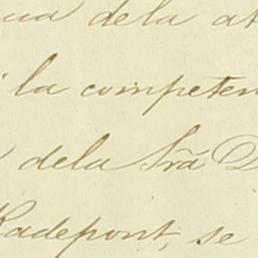 dela at
la competen
dela Srã D
Radepont, se